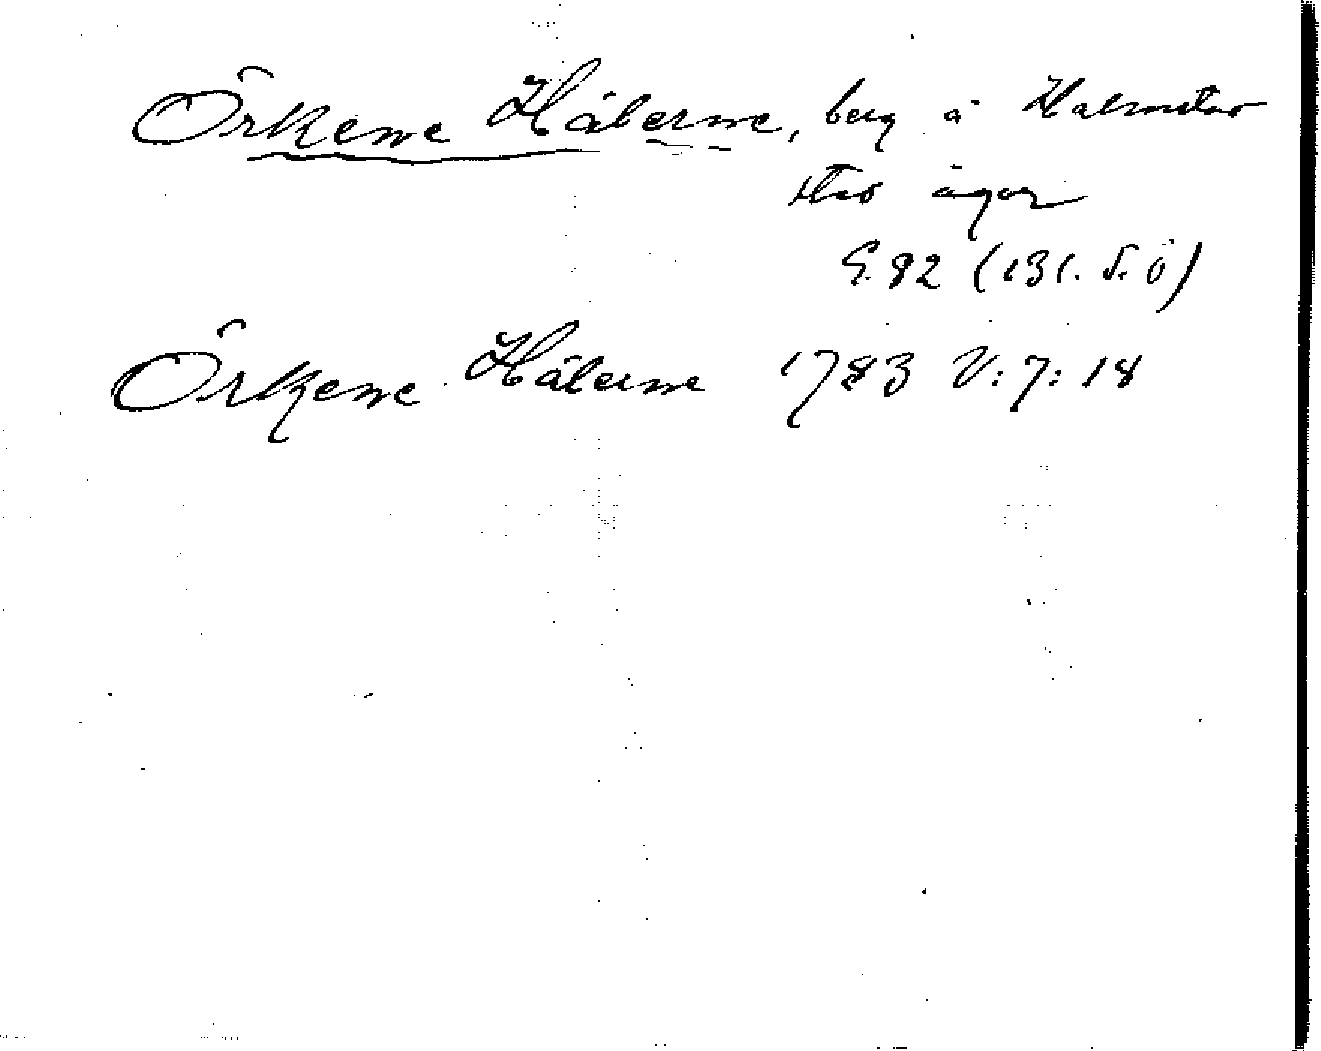 Örkene Hålerne, berg å Halmstad
Hds ägor
G. 92 (131. S. Ö)
Örkene Hålerne 1783 V: 7: 18